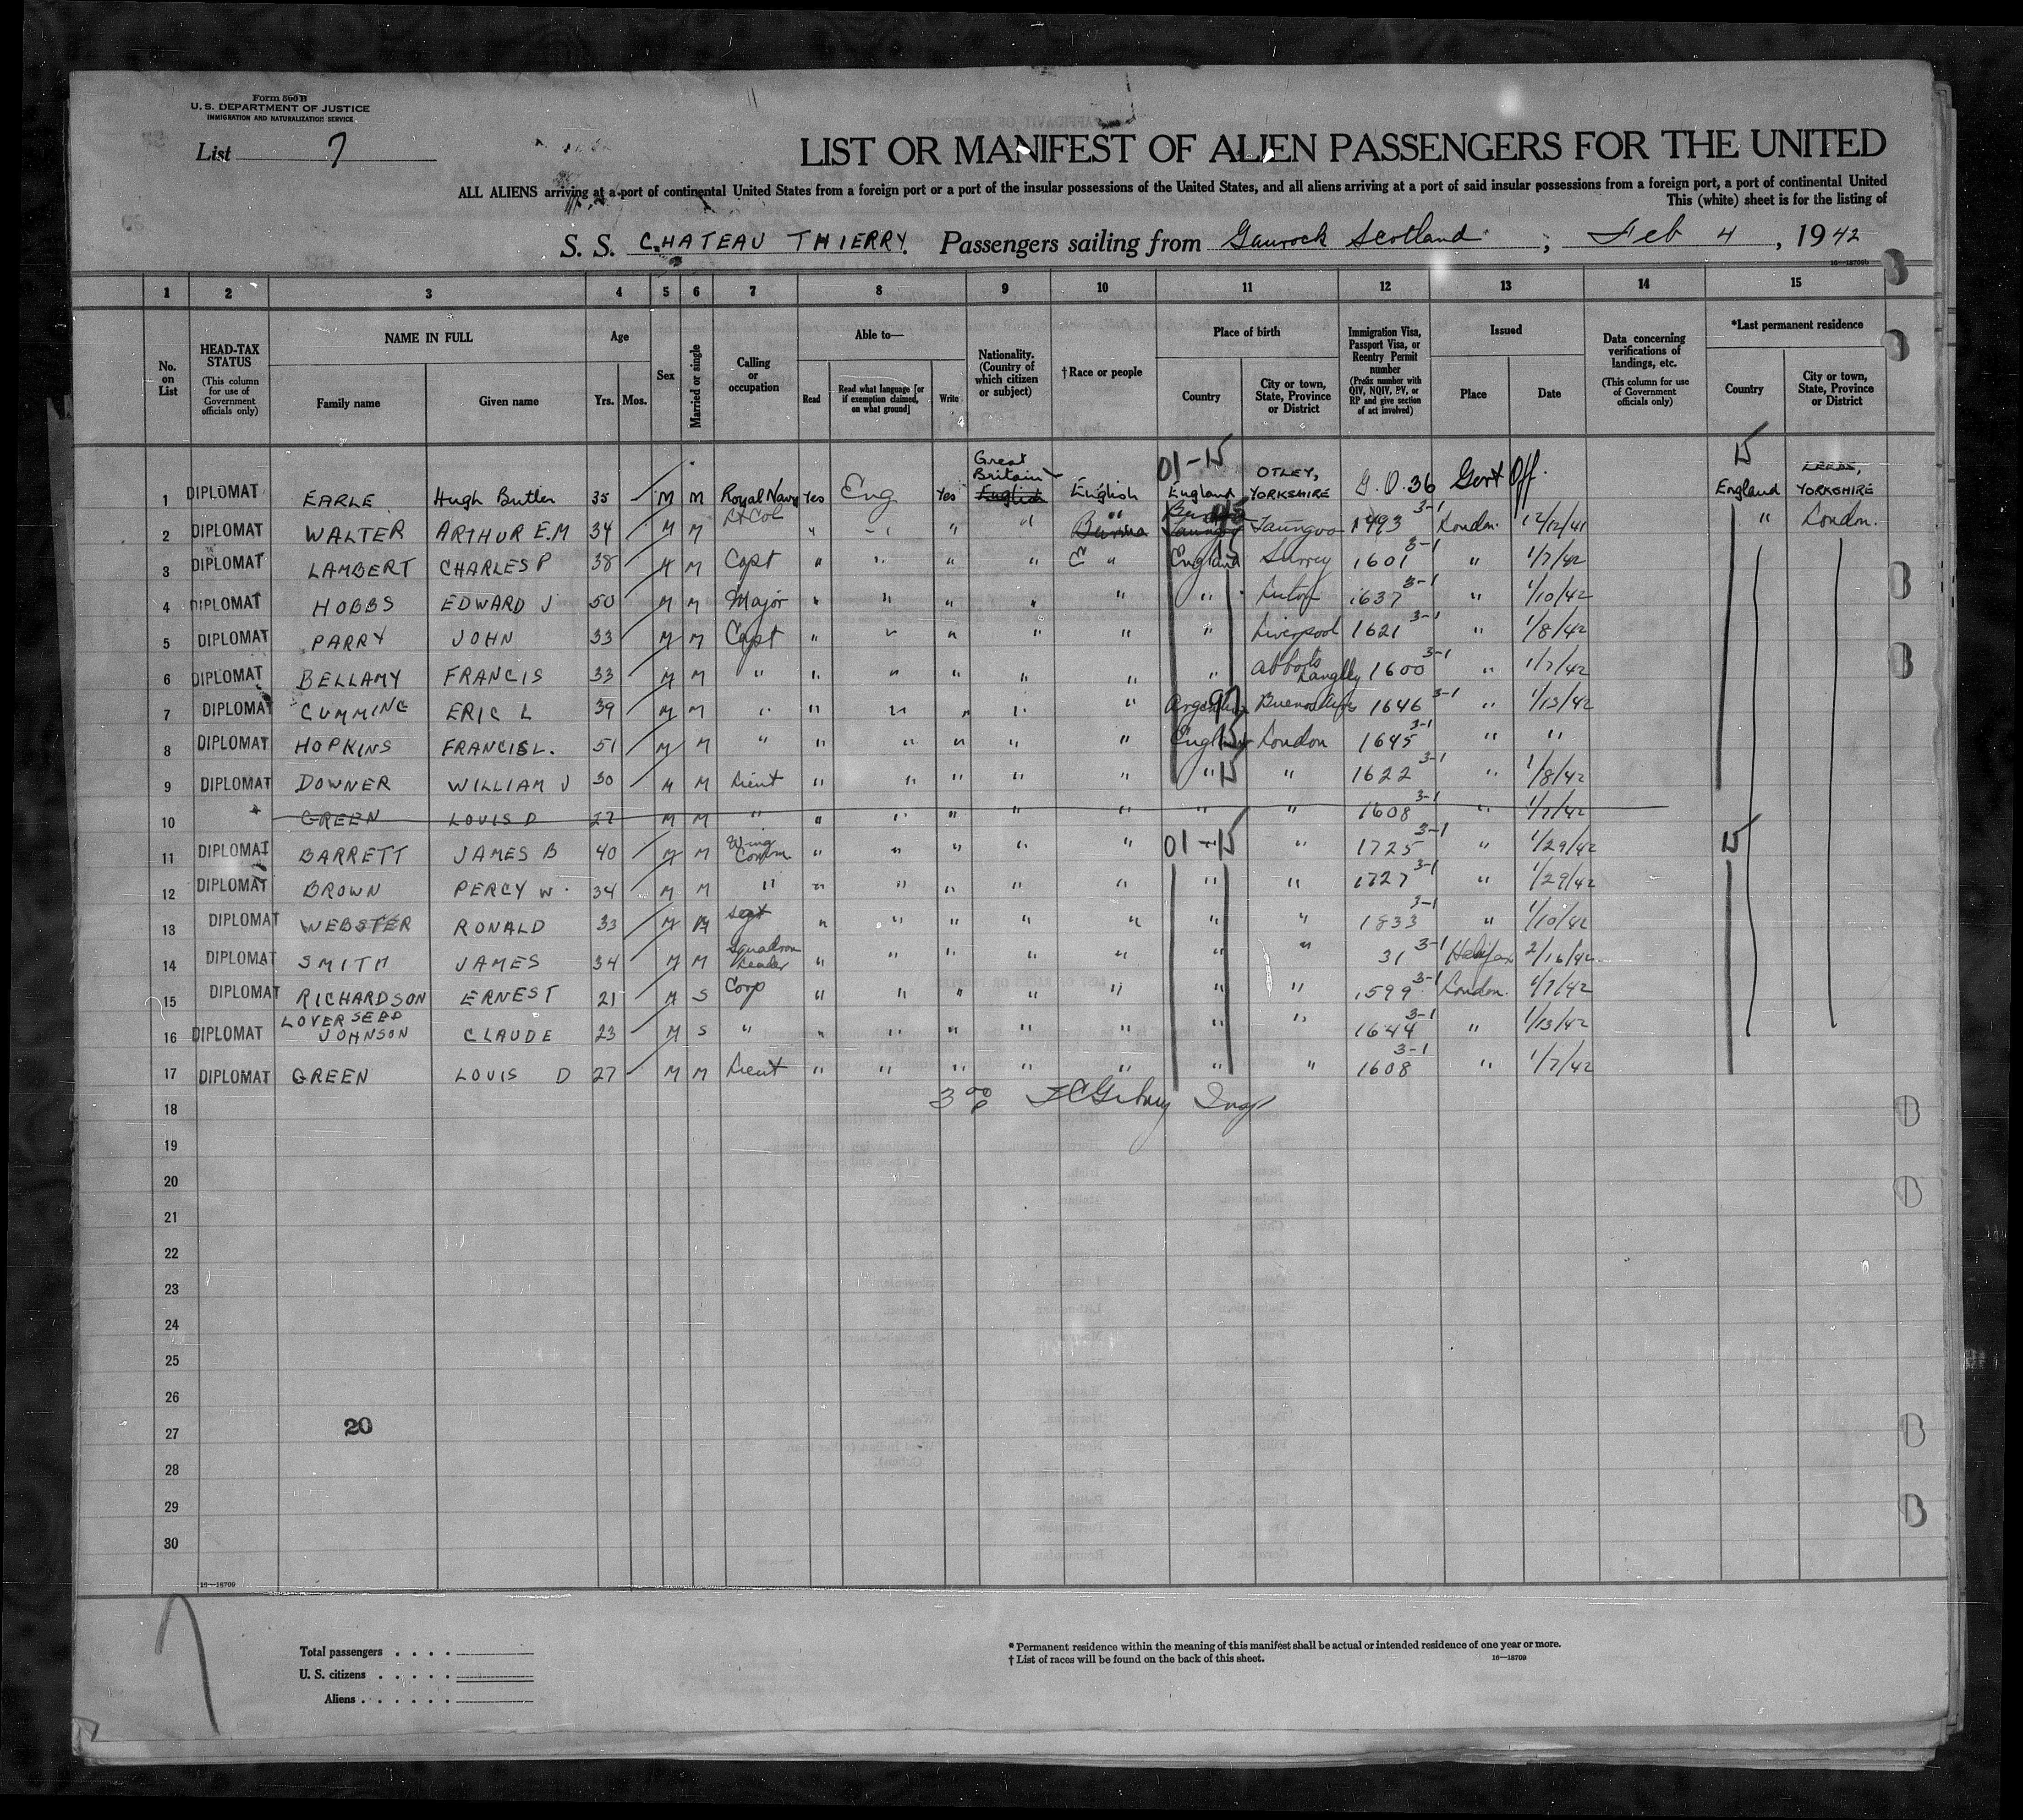 Form 500 B
U. S. DEPARTMENT OF JUSTICE
IMMIGRATION AND NATURALIZATION SERVICE
List 7
LIST OR MANIFEST OF ALIEN PASSENGERS FOR THE UNITED
ALL ALIENS arriving at a port of continental United States from a foreign port or a port of the insular possessions of the United States, and all aliens arriving at a port of said insular possessions from a foreign port, a port of continental United
This (white) sheet is for the listing of
S. S. CHATEAU THIERRY Passengers sailing from Gourock Scotland ; Feb 4 , 19 42
16—18709b
1 2 3 4 5 6 7 8 9 10 11 12 13 14 15
No. on List
HEAD-TAX STATUS (This column for use of Government officials only)
NAME IN FULL
Family name Given name
Age
Yrs. Mos.
Sex
Married or single
Calling or occupation
Able to—
Read
Read what language [or if exemption claimed, on what ground]
Write
Nationality. (Country of which citizen or subject)
†Race or people
Place of birth
Country
City or town, State, Province or District
Immigration Visa, Passport Visa, or Reentry Permit number (Prefix number with QIV, NQIV, PV, or RP and give section of act involved)
Issued
Place Date
Data concerning verifications of landings, etc. (This column for use of Government officials only)
*Last permanent residence
Country
City or town, State, Province or District
1 DIPLOMAT EARLE Hugh Butler 35 M M Royal Navy Yes Eng Yes Great Britain English English 01-15 England OTLEY, YORKSHIRE G.O.36 Govt Off. 15 England LEEDS, YORKSHIRE
2 DIPLOMAT WALTER ARTHUR E.M 34 M M Lt Col " " " " Burma " Taungoo 1493 3-1 London 12/12/41 " London.
3 DIPLOMAT LAMBERT CHARLES P 38 M M Capt " " " " E " England Surrey 1601 3-1 " 1/7/42
4 DIPLOMAT HOBBS EDWARD J 50 M M Major " " " " " " Luton 1637 3-1 " 1/10/42
5 DIPLOMAT PARRY JOHN 33 M M Capt " " " " " " Liverpool 1621 3-1 " 1/8/42
6 DIPLOMAT BELLAMY FRANCIS 33 M M " " " " " " " Abbots Langley 1600 3-1 " 1/7/42
7 DIPLOMAT CUMMING ERIC L 39 M M " " " " " " Argentina 97 Buenos Aires 1646 3-1 " 1/13/42
8 DIPLOMAT HOPKINS FRANCIS L. 51 M M " " " " " " England 15 London 1645 3-1 " "
9 DIPLOMAT DOWNER WILLIAM J 30 M M Lieut " " " " " " 15 " 1622 3-1 " 1/8/42
10 GREEN LOUIS D 27 M M " " " " " " " " 1608 3-1 " 1/7/42
11 DIPLOMAT BARRETT JAMES B 40 M M Wing Comm. " " " " " 01-15 " 1725 3-1 " 1/29/42 15
12 DIPLOMAT BROWN PERCY W. 34 M M " " " " " " " " 1727 3-1 " 1/29/42
13 DIPLOMAT WEBSTER RONALD 33 M M Sgt " " " " " " " 1833 3-1 " 1/10/42
14 DIPLOMAT SMITH JAMES 34 M M Squadron Leader " " " " " " " 31 3-1 Halifax 2/16/42
15 DIPLOMAT RICHARDSON ERNEST 21 M S Corp " " " " " " " 1599 3-1 London 1/7/42
16 DIPLOMAT LOVERSEED JOHNSON CLAUDE 23 M S " " " " " " " " 1644 3-1 " 1/13/42
17 DIPLOMAT GREEN LOUIS D 27 M M Lieut " " " " " " " 1608 3-1 " 1/7/42
18
19
20
21
22
23
24
25
26
27 20
28
29
30
16—18709
Total passengers . . . .
U. S. citizens . . . . .
Aliens . . . . . .
* Permanent residence within the meaning of this manifest shall be actual or intended residence of one year or more.
† List of races will be found on the back of this sheet.
16—18709